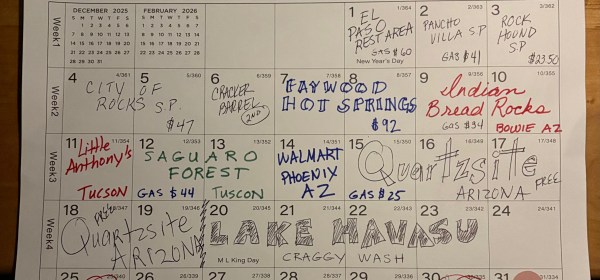 DECEMBER 2025
S M T W T F S
1 2 3 4 5 6
7 8 9 10 11 12 13
14 15 16 17 18 19 20
21 22 23 24 25 26 27
28 29 30 31
FEBRUARY 2026
S M T W T F S
1 2 3 4 5 6 7
8 9 10 11 12 13 14
15 16 17 18 19 20 21
22 23 24 25 26 27 28
Week1
1 1/364
EL
PASO
REST AREA
GAS $60
New Year's Day
2 2/363
PANCHO
VILLA S.P
GAS $41
3 3/362
ROCK
HOUND
S.P
$33.50
Week2
4 4/361
5 5/360
CITY OF
ROCKS S.P.
$47
6 6/359
CRACKER
BARREL
2ND
7 7/358
8 8/357
FAYWOOD
HOT SPRINGS
$92
9 9/356
10 10/355
Indian
Bread Rocks
GAS $34
BOWIE AZ
Week3
11 11/354
Little
Anthony's
TUCSON
12 12/353
13 13/352
SAGUARO
FOREST
GAS $44
TUSCON
14 14/351
WALMART
PHOENIX
AZ
15 15/350
16 16/349
17 17/348
Quartzsite
GAS $25
ARIZONA
FREE
Week4
18 18/347
19 19/346
Quartzsite
ARIZONA
20 20/345
21 21/344
22 22/343
23 23/342
24 24/341
LAKE HAVASU
M L King Day
CRAGGY WASH
25 25/340
26 26/339
27 27/338
28 28/337
29 29/336
30
31 31/334